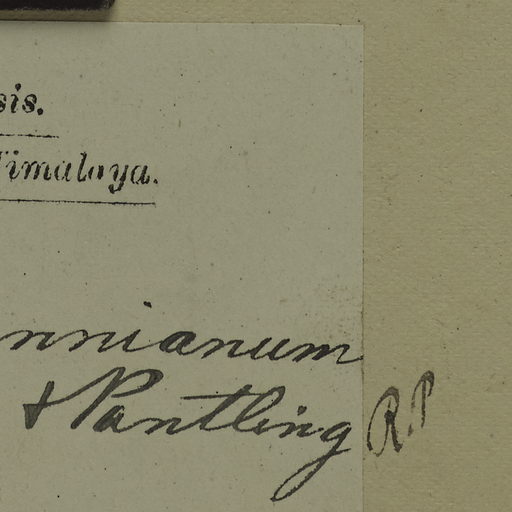 sis.
Himalaya.
nnianum
& Pantling R.P